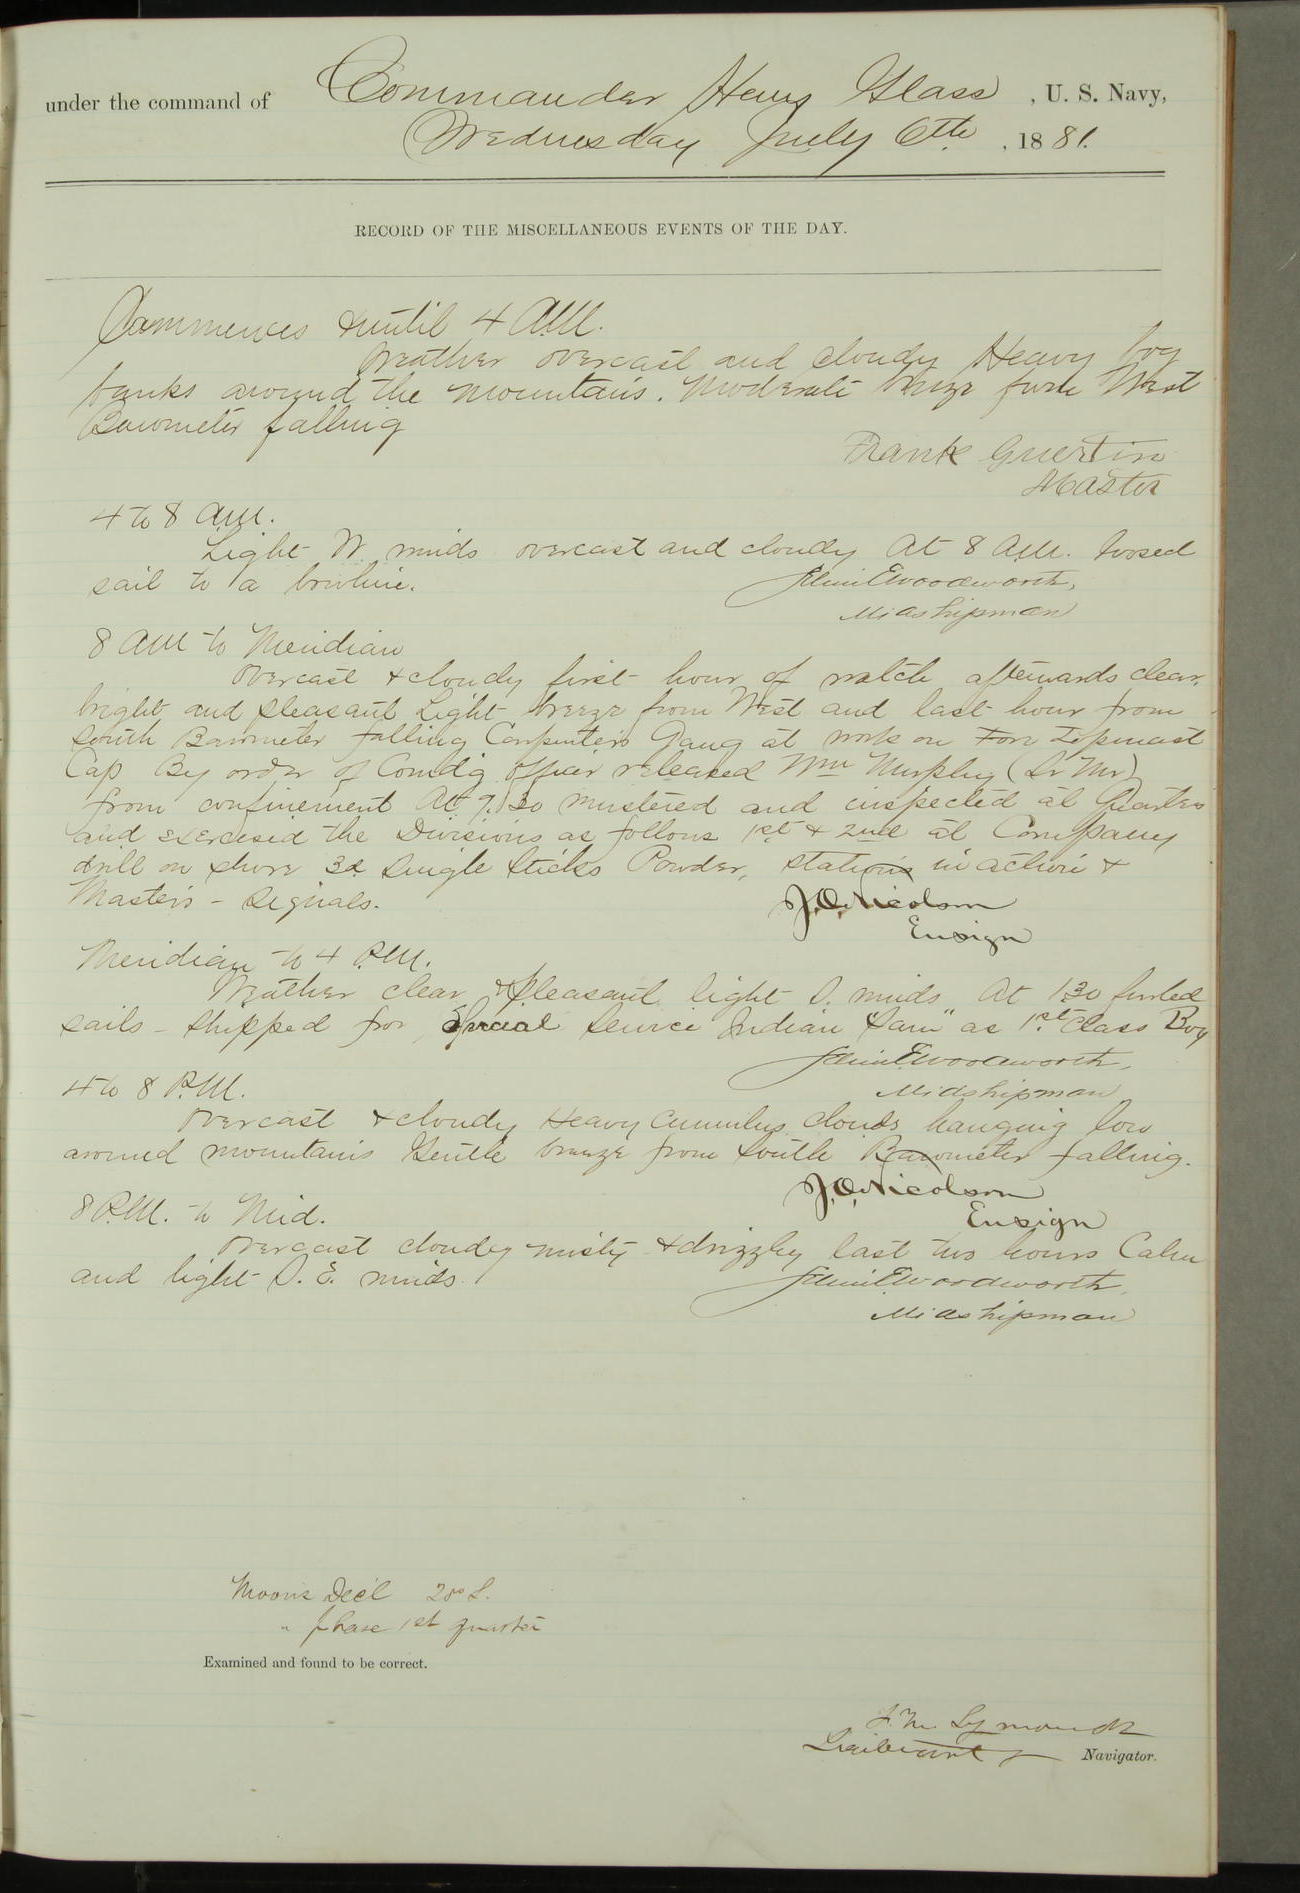 under the command of Commander Henry Glass, U. S. Navy,
Wednesday July 6th, 1881.
RECORD OF THE MISCELLANEOUS EVENTS OF THE DAY.
Commences & until 4 A.M.
Weather overcast and cloudy Heavy fog
banks around the mountains. Moderate breeze from West
Barometer falling
Frank Guertin
Master
4 to 8 A.M.
Light W. winds overcast and cloudy At 8 A.M. loosed
sail to a bowline.
Selim E Woodworth,
Midshipman
8 AM to Meridian
Overcast & cloudy first hour of watch afterwards clear,
bright and pleasant Light breeze from West and last hour from
South Barometer falling Carpenters Gang at work on Fore Topmast
Cap By order of Comdg officer released Wm Murphy
from confinement At 9.30 mustered and inspected at Quarters
and exercised the Divisions as follows 1st & 2nd at Company
drill on shore 3d Single Sticks Powder, stations in action &
Masters - Signals.
J.O. Nicolson
Ensign
Meridian to 4 P.M.
Weather clear & pleasant light S. winds At 1.30 furled
sails - Shipped for Special Service Indian "Sam" as 1st Class Boy
Selim E Woodworth,
Midshipman
4 to 8 P.M.
Overcast & cloudy Heavy cumulus clouds hanging low
around mountains Gentle breeze from South Barometer falling.
J.O. Nicolson
Ensign
8 P.M. to Mid.
Overcast cloudy misty & drizzly last two hours Calm
and light S. E. winds.
Selim E Woodworth,
Midshipman
Moons Decl S.
" Phase 1st quarter
Examined and found to be correct.
F. M. Symonds
Lieutenant Navigator.